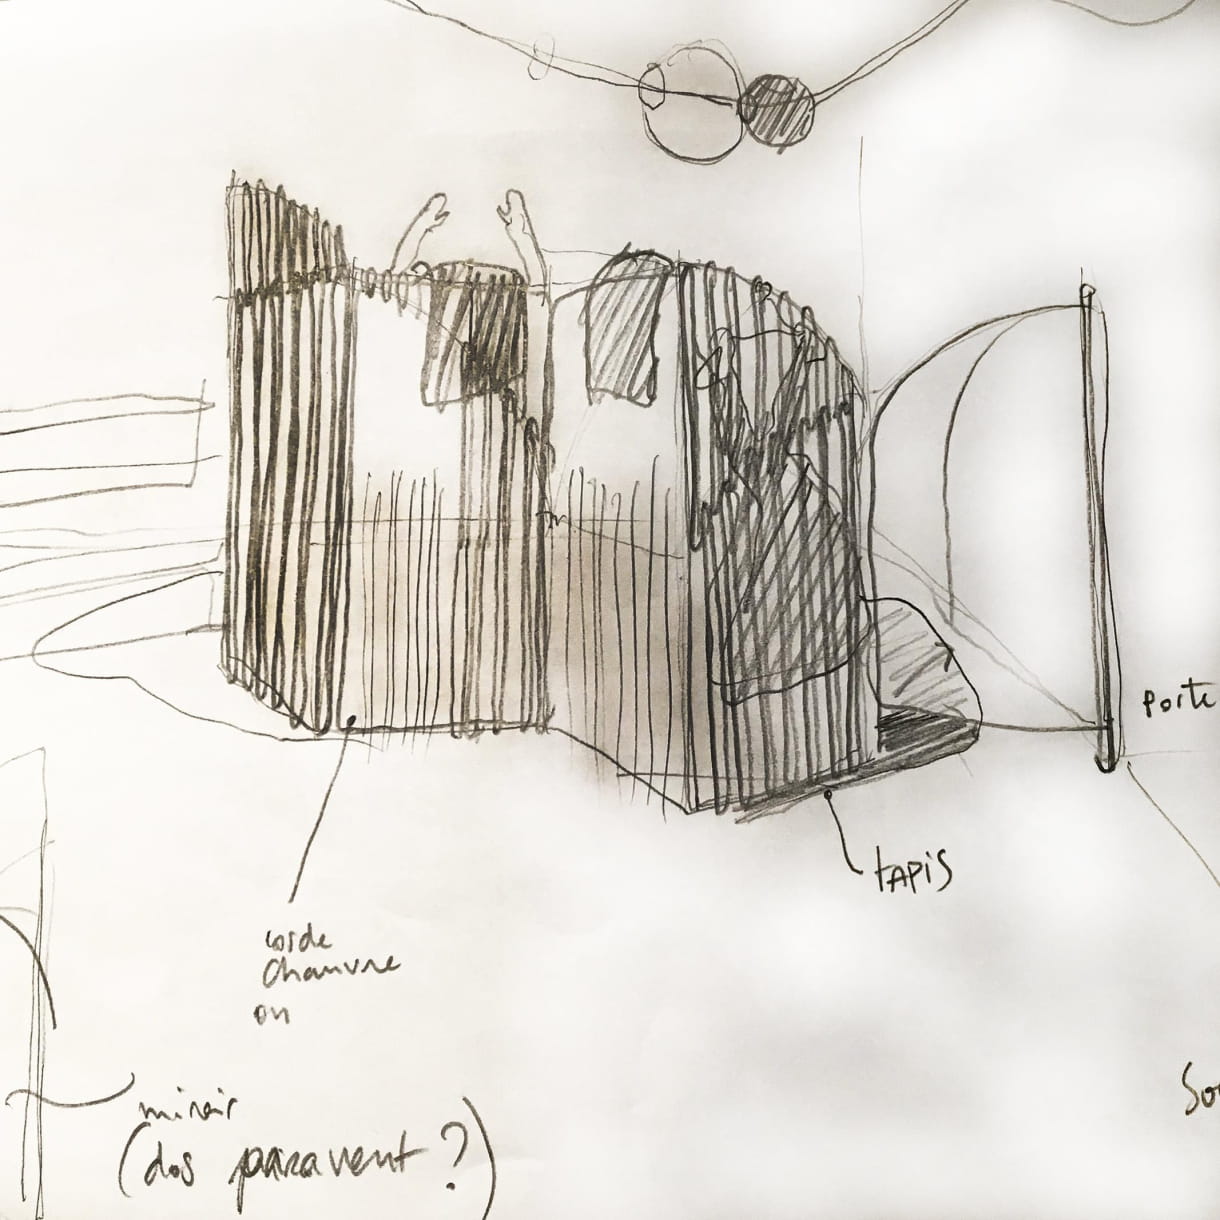 porte
tapis
corde
chanvre
ou
miroir
(dos paravent ?)